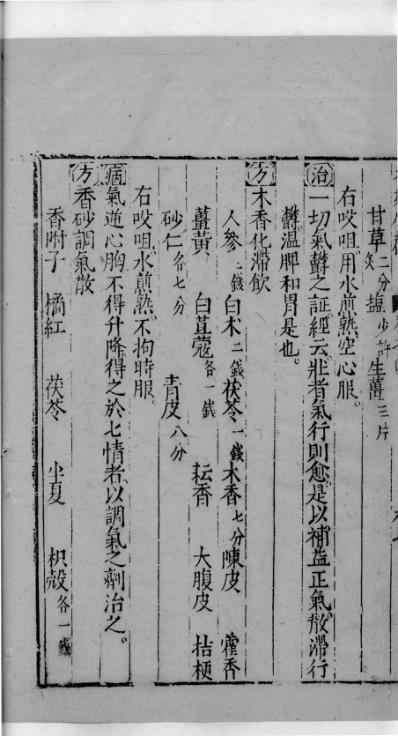 甘草二分炙 塩少許 生薑三片
右㕮咀用水煎熟空心服
治一切氣欝之証經云壯者氣行則愈是以補益正氣散滯行
欝溫脾和胃是也
方木香化滯飲
人參二錢 白朮二錢 茯苓一錢 木香七分 陳皮 藿香
薑黃 白荳蔻各一錢 耘香 大腹皮 桔梗
砂仁各七分 青皮八分
右㕮咀水煎熟不拘時服
病氣逆心胸不得升降得之於七情者以調氣之劑治之
方香砂調氣散
香附子 橘紅 茯苓 半夏 枳殼各一錢